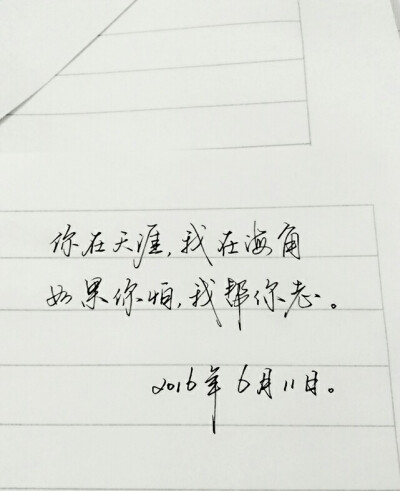 你在天涯,我在海角
如果你怕,我帮你忘。
2016年6月11日。